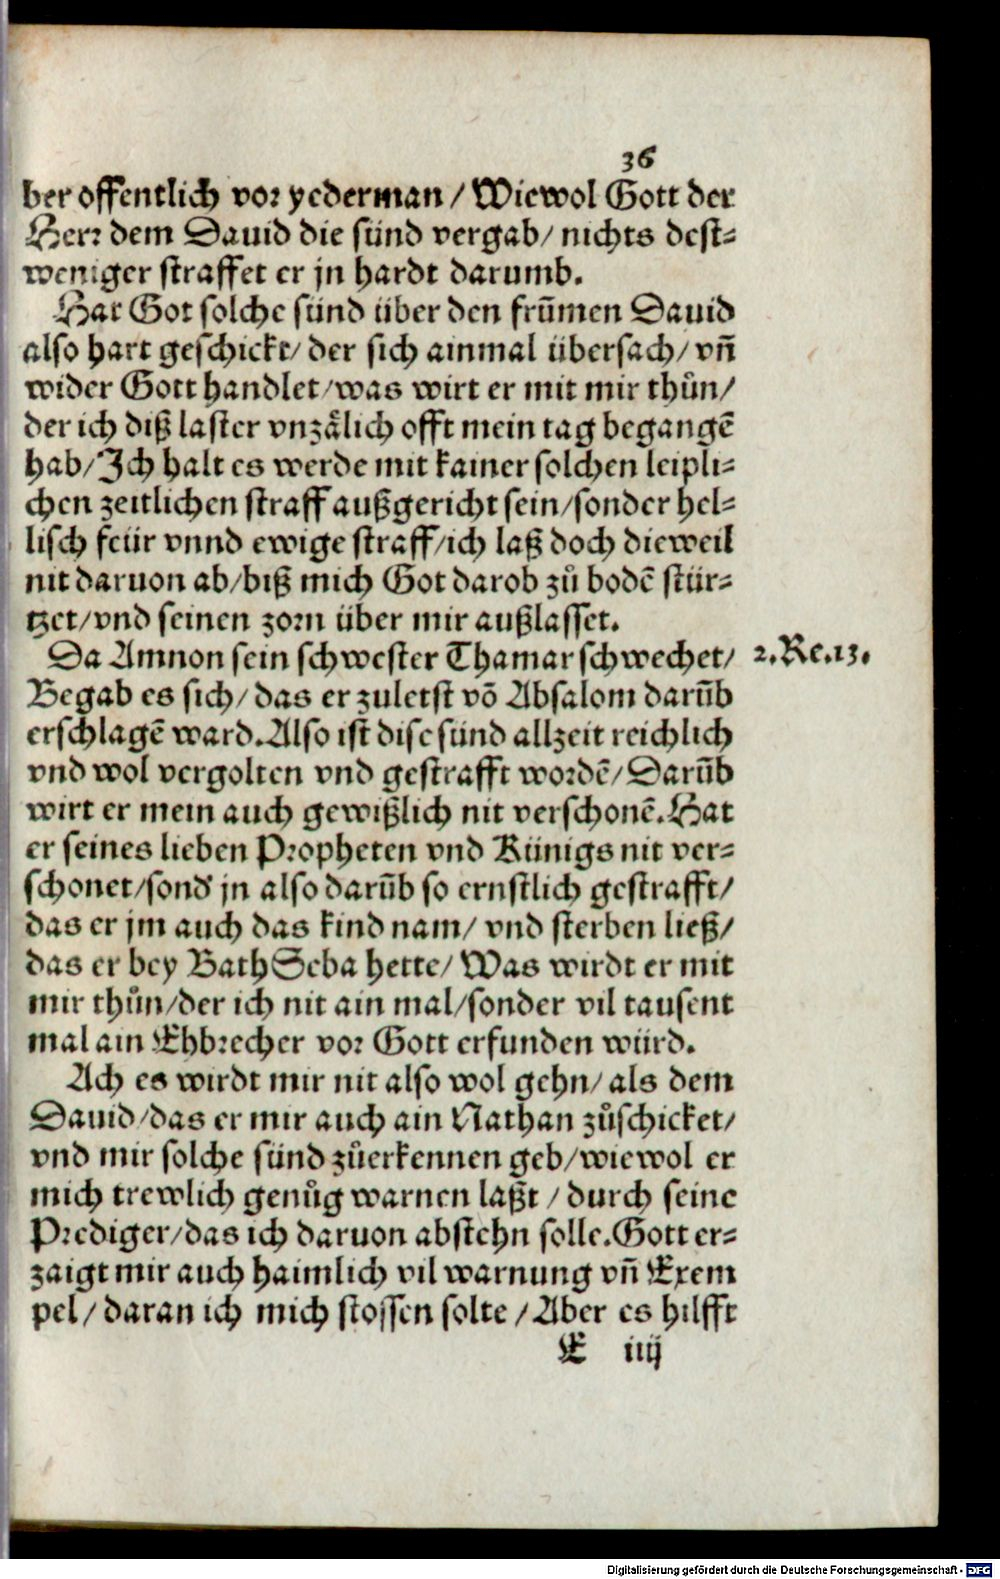 36
ber offentlich vor yederman / Wiewol Gott der
Herr dem Dauid die sünd vergab / nichts dest=
weniger straffet er jn hardt darumb.
Hat Got solche sünd über den frūmen Dauid
also hart geschickt / der sich ainmal übersach / vñ
wider Gott handlet / was wirt er mit mir thůn /
der ich diß laster vnzälich offt mein tag begangē
hab / Ich halt es werde mit kainer solchen leipli=
chen zeitlichen straff außgericht sein / sonder hel=
lisch feür vnnd ewige straff / ich laß doch dieweil
nit daruon ab / biß mich Got darob zů bodē stür=
tzet / vnd seinen zorn über mir außlasset.
Da Amnon sein schwester Thamar schwechet / 2.Re.13.
Begab es sich / das er zuletst vō Absalom darūb
erschlagē ward. Also ist dise sünd allzeit reichlich
vnd wol vergolten vnd gestrafft wordē / Darūb
wirt er mein auch gewißlich nit verschonē. Hat
er seines lieben Propheten vnd Künigs nit ver=
schonet / sond' jn also darūb so ernstlich gestrafft /
das er jm auch das kind nam / vnd sterben ließ /
das er bey BathSeba hette / Was wirdt er mit
mir thůn / der ich nit ain mal / sonder vil tausent
mal ain Ehbrecher vor Gott erfunden würd.
Ach es wirdt mir nit also wol gehn / als dem
Dauid / das er mir auch ain Nathan zůschicket /
vnd mir solche sünd zůerkennen geb / wiewol er
mich trewlich genůg warnen laßt / durch seine
Prediger / das ich daruon abstehn solle. Gott er=
zaigt mir auch haimlich vil warnung vñ Exem
pel / daran ich mich stossen solte / Aber es hilfft
E iiij
Digitalisierung gefördert durch die Deutsche Forschungsgemeinschaft - DFG